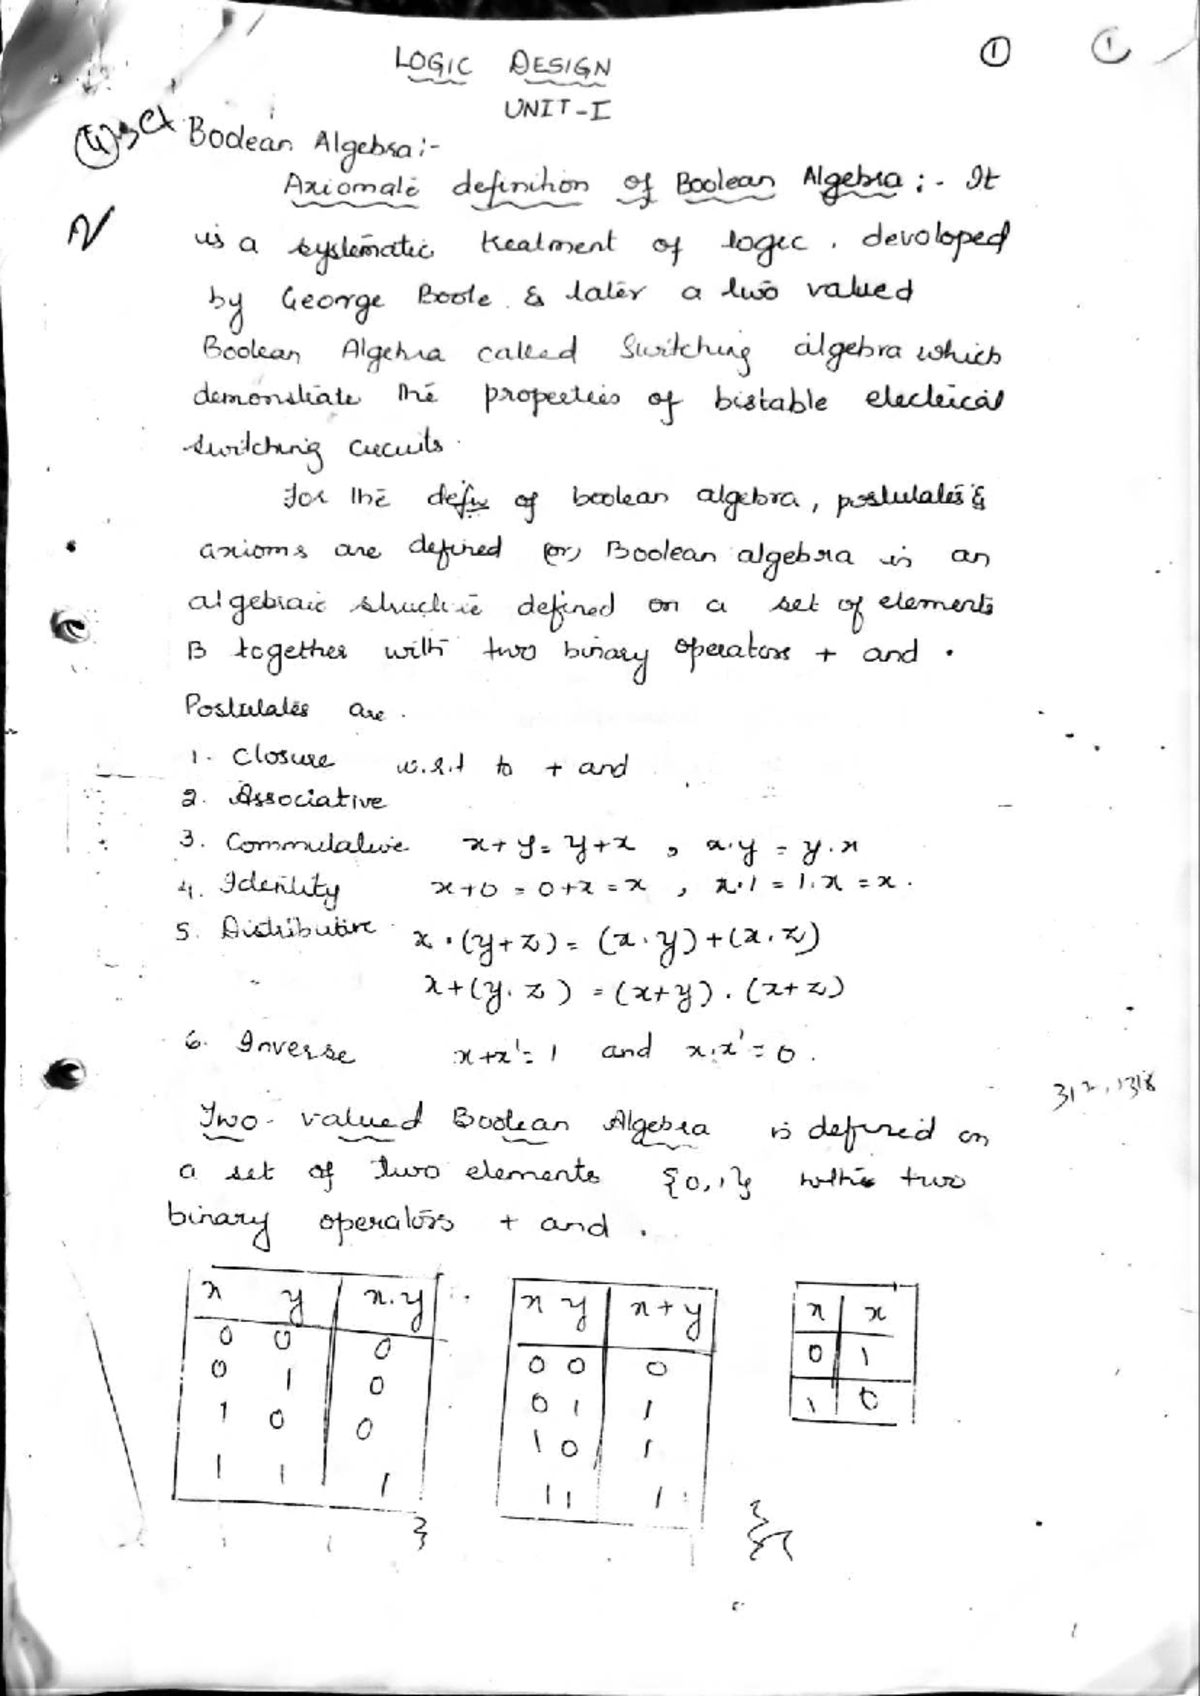 LOGIC DESIGN
1 1
UNIT-I
Boolean Algebra:-
Axiomatic definition of Boolean Algebra:- It
is a systematic treatment of logic. devoloped
by George Boole & later a two valued
Boolean Algebra called Switching algebra which
demonstrate the properties of bistable electrical
switching circuits.
For the defn of boolean algebra, postulates &
axioms are defined (or) Boolean algebra is an
algebraic structure defined on a set of elements
B together with two binary operators + and .
Postulates are.
1. Closure w.r.t to + and
2. Associative
3. Commutative x+y=y+x , x.y = y.x
4. Identity x+0 = 0+x = x , x.1 = 1.x = x.
5. Distributive x.(y+z) = (x.y)+(x.z)
" x+(y.z) = (x+y).(x+z)
6. Inverse x+x'=1 and x.x'=0.
Two-valued Boolean Algebra is defined on
a set of two elements {0,1} with two
binary operators + and .
x y x.y
0 0 0
0 1 0
1 0 0
1 1 1
x y x+y
0 0 0
0 1 1
1 0 1
1 1 1
x x
0 1
1 0